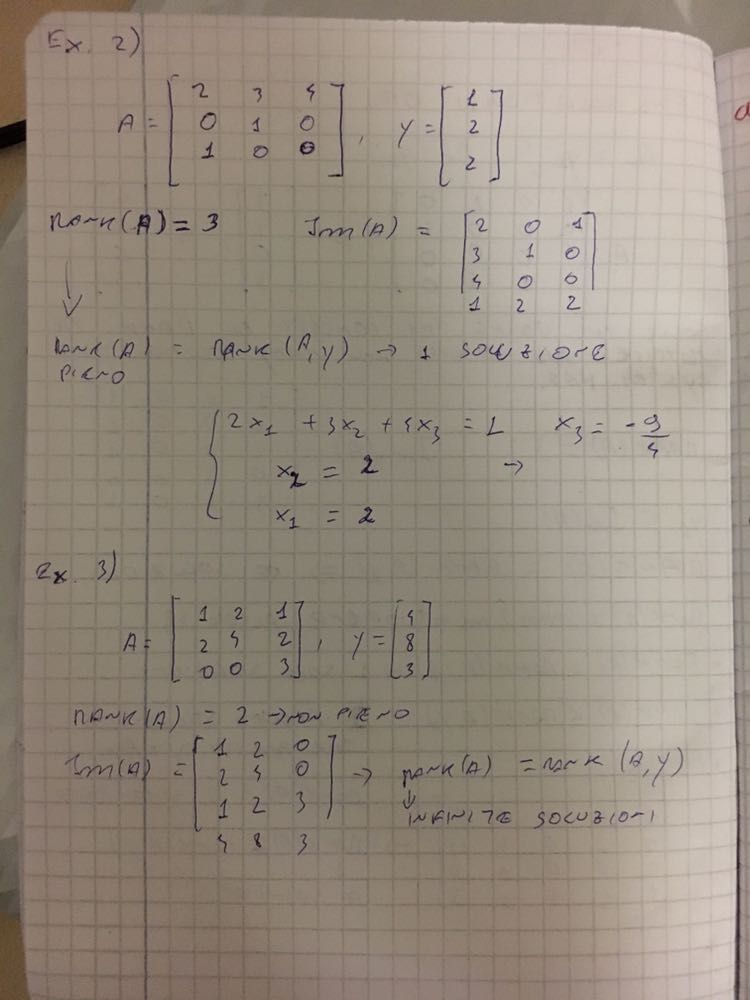 Ex. 2)
A = [ 2 3 4 ; 0 1 0 ; 1 0 0 ] , Y = [ 1 ; 2 ; 2 ]
RANK(A) = 3 Im(A) = [ 2 0 1 ; 3 1 0 ; 4 0 0 ]
1 2 2
↓
RANK(A) = RANK(A,Y) → 1 SOLUZIONE
PIENO
{ 2x₁ + 3x₂ + 4x₃ = 1 x₃ = -9/4
x₂ = 2 →
x₁ = 2
Ex. 3)
A = [ 1 2 1 ; 2 4 2 ; 0 0 3 ] , Y = [ 4 ; 8 ; 3 ]
RANK(A) = 2 → NON PIENO
Im(A) = [ 1 2 0 ; 2 4 0 ; 1 2 3 ] → RANK(A) = RANK (A,Y)
4 8 3
↓
INFINITE SOLUZIONI